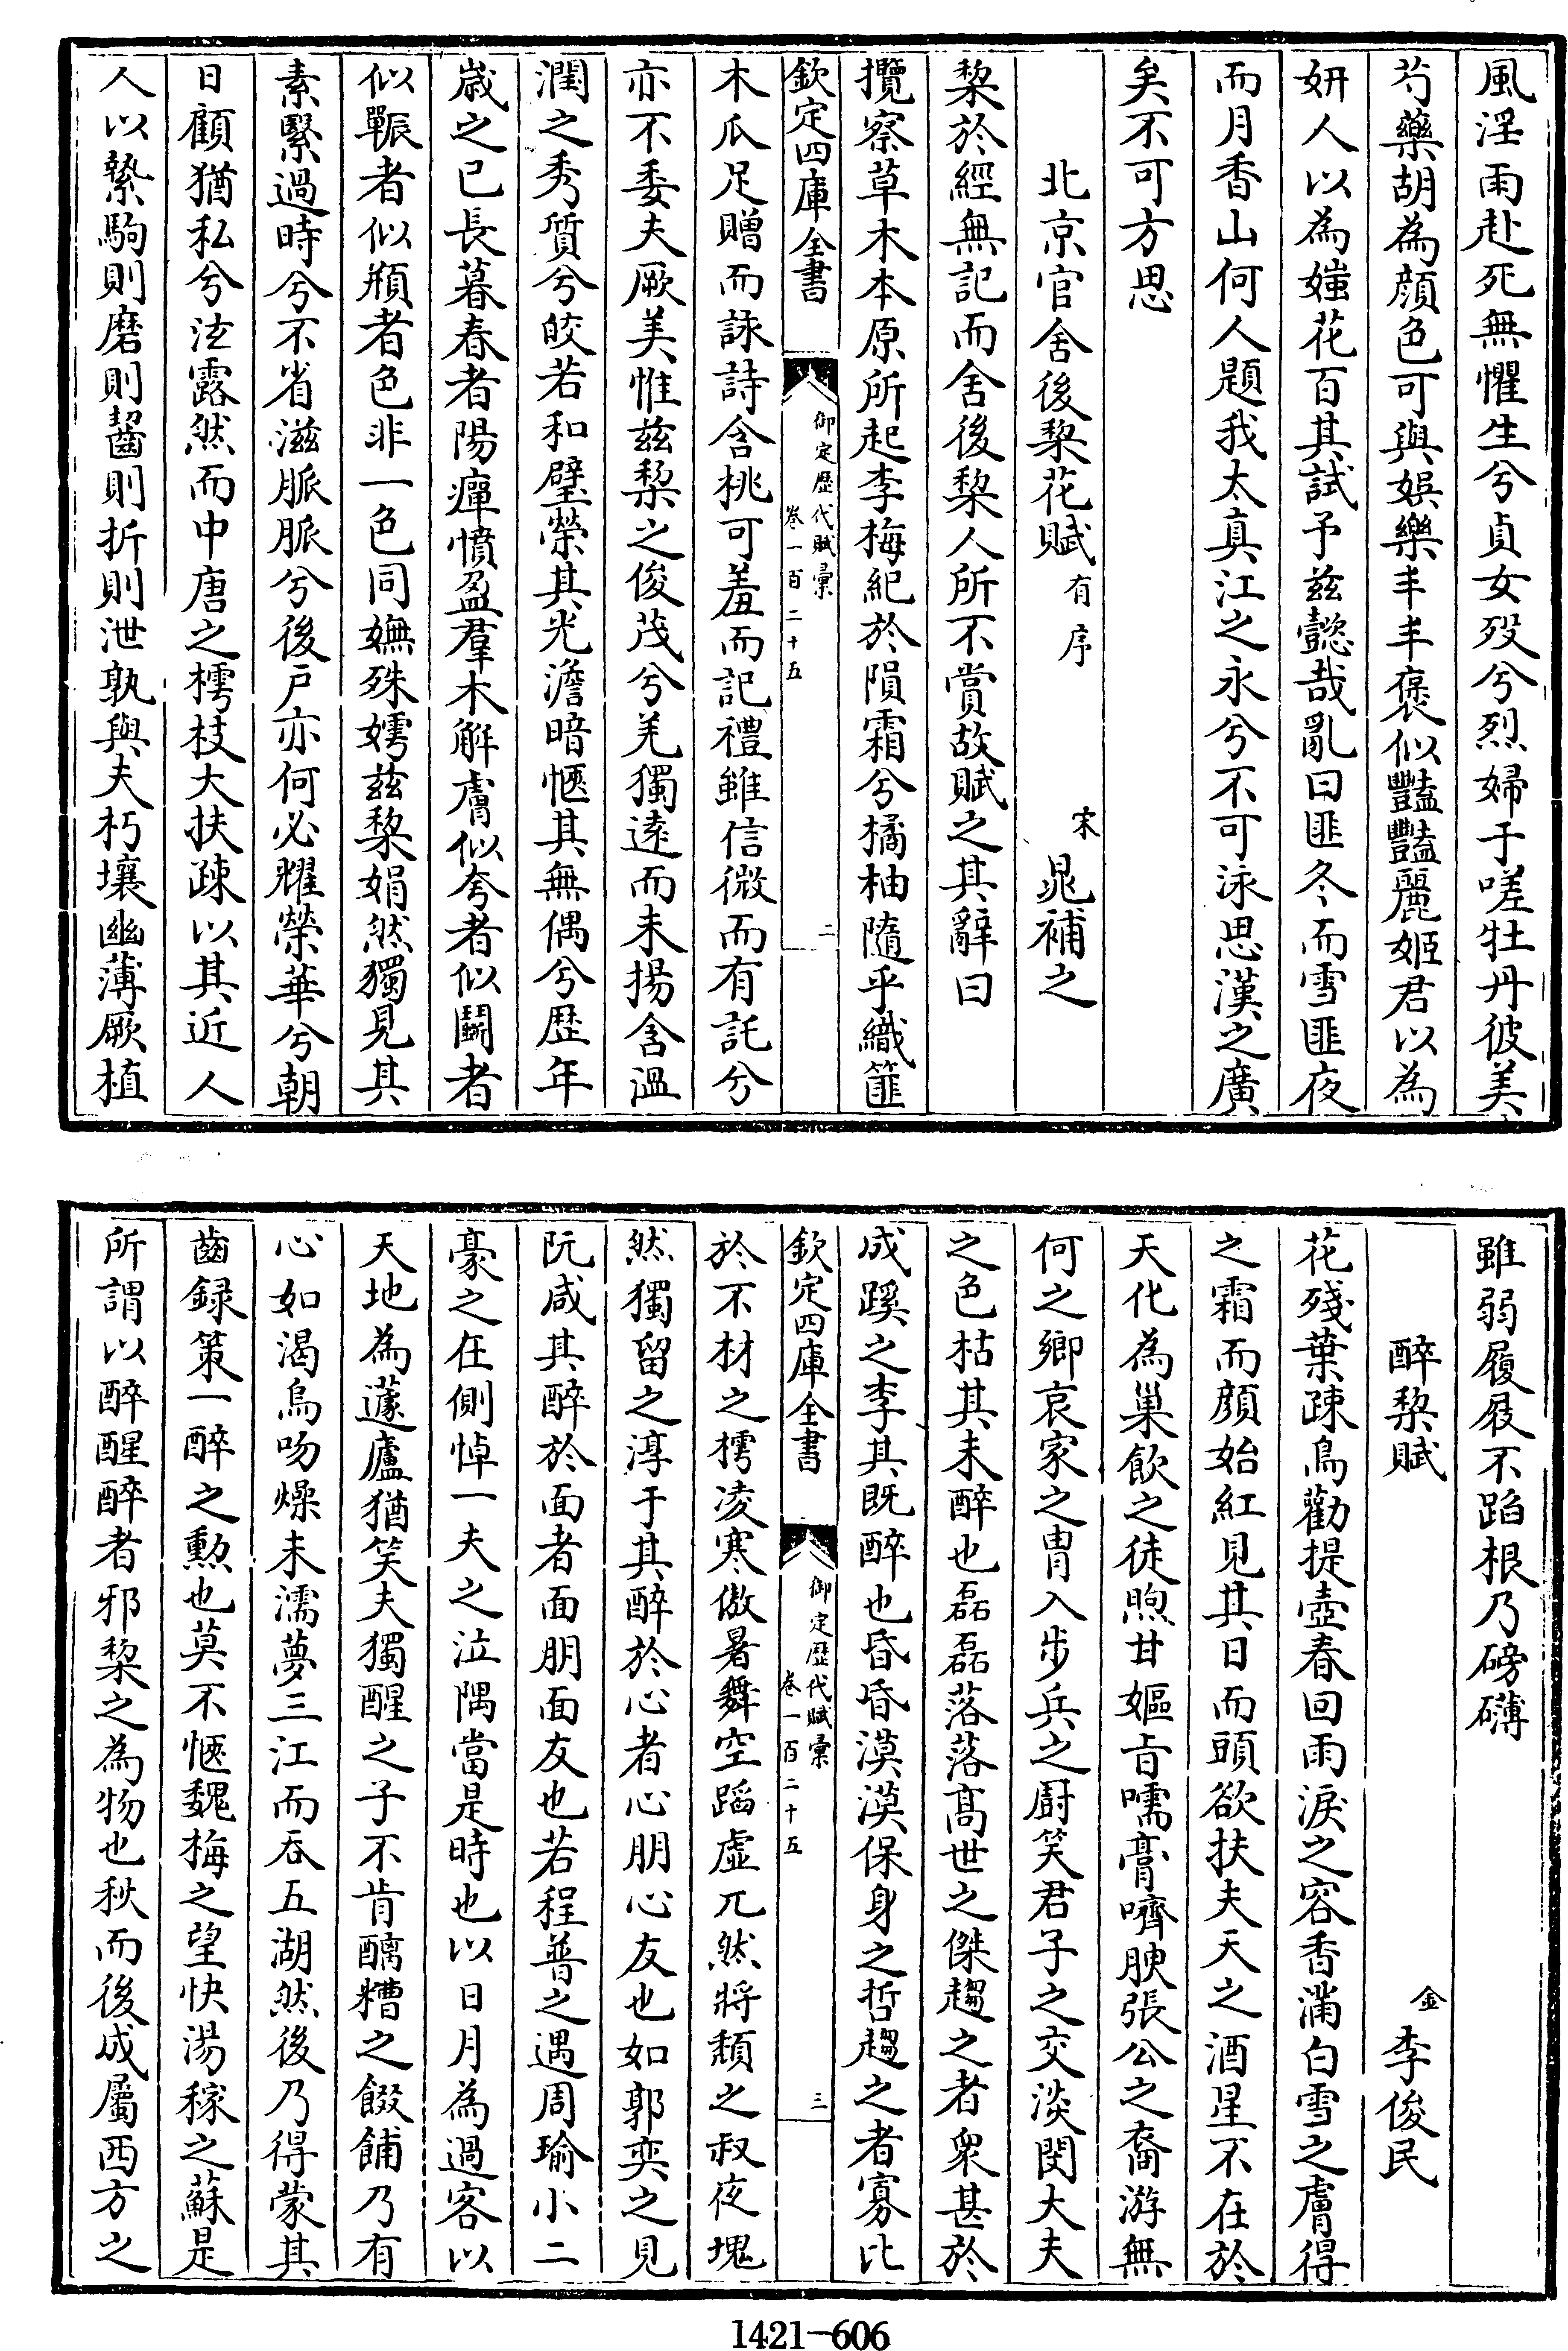 風淫雨赴死無懼生兮貞女歿兮烈婦于嗟牡丹彼美
芍藥胡為顔色可與娱樂丰丰褒似豔豔麗姬君以為
妍人以為媸花百其試予兹懿哉亂曰匪冬而雪匪夜
而月香山何人題我太真江之永兮不可泳思漢之廣
矣不可方思
北京官舍後棃花賦有序 宋 晁補之
棃於經無記而舍後棃人所不賞故賦之其辭曰
攬察草木本原所起李梅紀於隕霜兮橘柚隨乎織篚
欽定四庫全書 御定歴代賦彙 卷一百二十五 二
木瓜足贈而詠詩含桃可羞而記禮雖信微而有託兮
亦不委夫厥美惟兹棃之俊茂兮羌獨遠而未揚含温
潤之秀質兮皎若和璧榮其光澹暗愜其無偶兮歴年
嵗之已長暮春者陽癉憤盈羣木解膚似夸者似鬭者
似冁者似頩者色非一色同嫵殊嫮兹棃娟然獨見其
素緊過時兮不省滋脈脈兮後戸亦何必耀榮華兮朝
日顧猶私兮泫露然而中唐之樗枝大扶疎以其近人
人以縶駒則磨則齧則折則泄孰與夫朽壤幽薄厥植
雖弱履屐不蹈根乃磅礴
醉棃賦 金 李俊民
花殘葉疎鳥勸提壺春回雨淚之容香滿白雪之膚得
之霜而顔始紅見其日而頭欲扶夫天之酒星不在於
天化為巢飲之徒煦甘嫗㫖嚅膏嚌腴張公之裔游無
何之鄉哀家之胄入步兵之厨笑君子之交淡閔大夫
之色枯其未醉也磊磊落落髙世之傑趨之者衆甚於
成蹊之李其既醉也昏昏漠漠保身之哲趨之者寡比
欽定四庫全書 御定歴代賦彙 卷一百二十五 三
於不材之樗凌寒傲暑舞空蹈虚兀然將頽之叔夜塊
然獨留之淳于其醉於心者心朋心友也如郭奕之見
阮咸其醉於面者面朋面友也若程普之遇周瑜小二
豪之在側悼一夫之泣隅當是時也以日月為過客以
天地為蘧廬猶笑夫獨醒之子不肯醨糟之餟餔乃有
心如渴烏吻燥未濡夢三江而吞五湖然後乃得蒙其
齒録策一醉之勲也莫不愜魏梅之望快湯稼之蘇是
所謂以醉醒醉者邪棃之為物也秋而後成屬西方之
1421—606